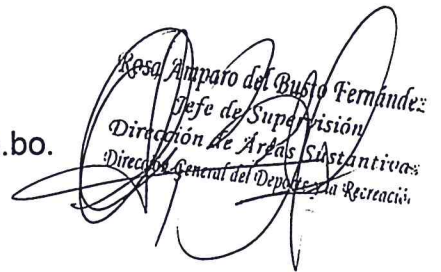 .bo.
Rosa Amparo del Busto Fernández
Jefe de Supervisión
Dirección de Áreas Sustantivas
Dirección General del Deporte y la Recreación